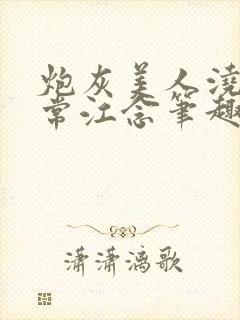 炮灰美人浇
常江念笔趣
潇潇漓歌